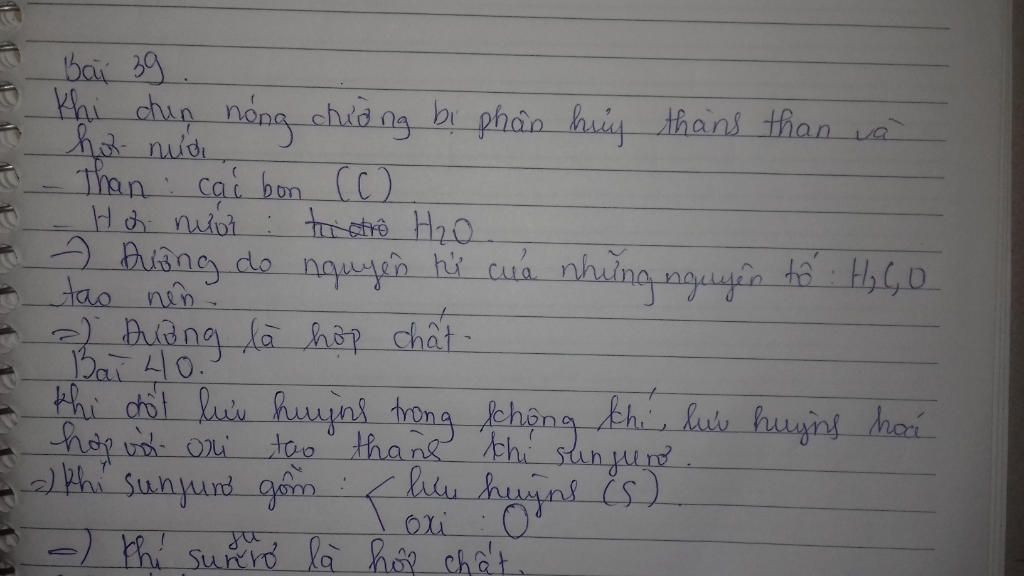 Bài 39.
Khi đun nóng đường bị phân hủy thành than và
hơi nước
- Than: các bon (C)
- Hơi nước: H2O.
→ Đường do nguyên tử của những nguyên tố: H, C, O
tạo nên.
=> Đường là hợp chất.
Bài 40.
Khi đốt lưu huỳnh trong không khí, lưu huỳnh hoá
hợp với oxi tạo thành khí sunfurơ.
=> Khí sunfurơ gồm: lưu huỳnh (S)
oxi: O
=> Khí sunfurơ là hợp chất.